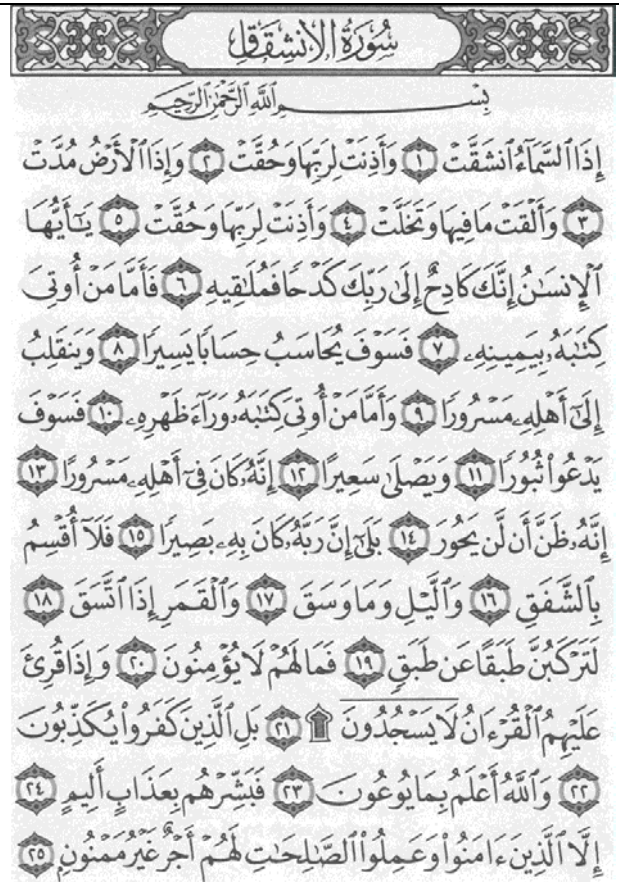 سُورَةُ الانشقاق
بِسْمِ ٱللَّهِ ٱلرَّحْمَٰنِ ٱلرَّحِيمِ
إِذَا ٱلسَّمَآءُ ٱنشَقَّتْ ١ وَأَذِنَتْ لِرَبِّهَا وَحُقَّتْ ٢ وَإِذَا ٱلْأَرْضُ مُدَّتْ
٣ وَأَلْقَتْ مَا فِيهَا وَتَخَلَّتْ ٤ وَأَذِنَتْ لِرَبِّهَا وَحُقَّتْ ٥ يَٰٓأَيُّهَا
ٱلْإِنسَٰنُ إِنَّكَ كَادِحٌ إِلَىٰ رَبِّكَ كَدْحًا فَمُلَٰقِيهِ ٦ فَأَمَّا مَنْ أُوتِىَ
كِتَٰبَهُۥ بِيَمِينِهِۦ ٧ فَسَوْفَ يُحَاسَبُ حِسَابًا يَسِيرًا ٨ وَيَنقَلِبُ
إِلَىٰٓ أَهْلِهِۦ مَسْرُورًا ٩ وَأَمَّا مَنْ أُوتِىَ كِتَٰبَهُۥ وَرَآءَ ظَهْرِهِۦ ١٠ فَسَوْفَ
يَدْعُوا۟ ثُبُورًا ١١ وَيَصْلَىٰ سَعِيرًا ١٢ إِنَّهُۥ كَانَ فِىٓ أَهْلِهِۦ مَسْرُورًا ١٣
إِنَّهُۥ ظَنَّ أَن لَّن يَحُورَ ١٤ بَلَىٰٓ إِنَّ رَبَّهُۥ كَانَ بِهِۦ بَصِيرًا ١٥ فَلَآ أُقْسِمُ
بِٱلشَّفَقِ ١٦ وَٱلَّيْلِ وَمَا وَسَقَ ١٧ وَٱلْقَمَرِ إِذَا ٱتَّسَقَ ١٨
لَتَرْكَبُنَّ طَبَقًا عَن طَبَقٍ ١٩ فَمَا لَهُمْ لَا يُؤْمِنُونَ ٢٠ وَإِذَا قُرِئَ
عَلَيْهِمُ ٱلْقُرْءَانُ لَا يَسْجُدُونَ ۩ ٢١ بَلِ ٱلَّذِينَ كَفَرُوا۟ يُكَذِّبُونَ
٢٢ وَٱللَّهُ أَعْلَمُ بِمَا يُوعُونَ ٢٣ فَبَشِّرْهُم بِعَذَابٍ أَلِيمٍ ٢٤
إِلَّا ٱلَّذِينَ ءَامَنُوا۟ وَعَمِلُوا۟ ٱلصَّٰلِحَٰتِ لَهُمْ أَجْرٌ غَيْرُ مَمْنُونٍ ٢٥